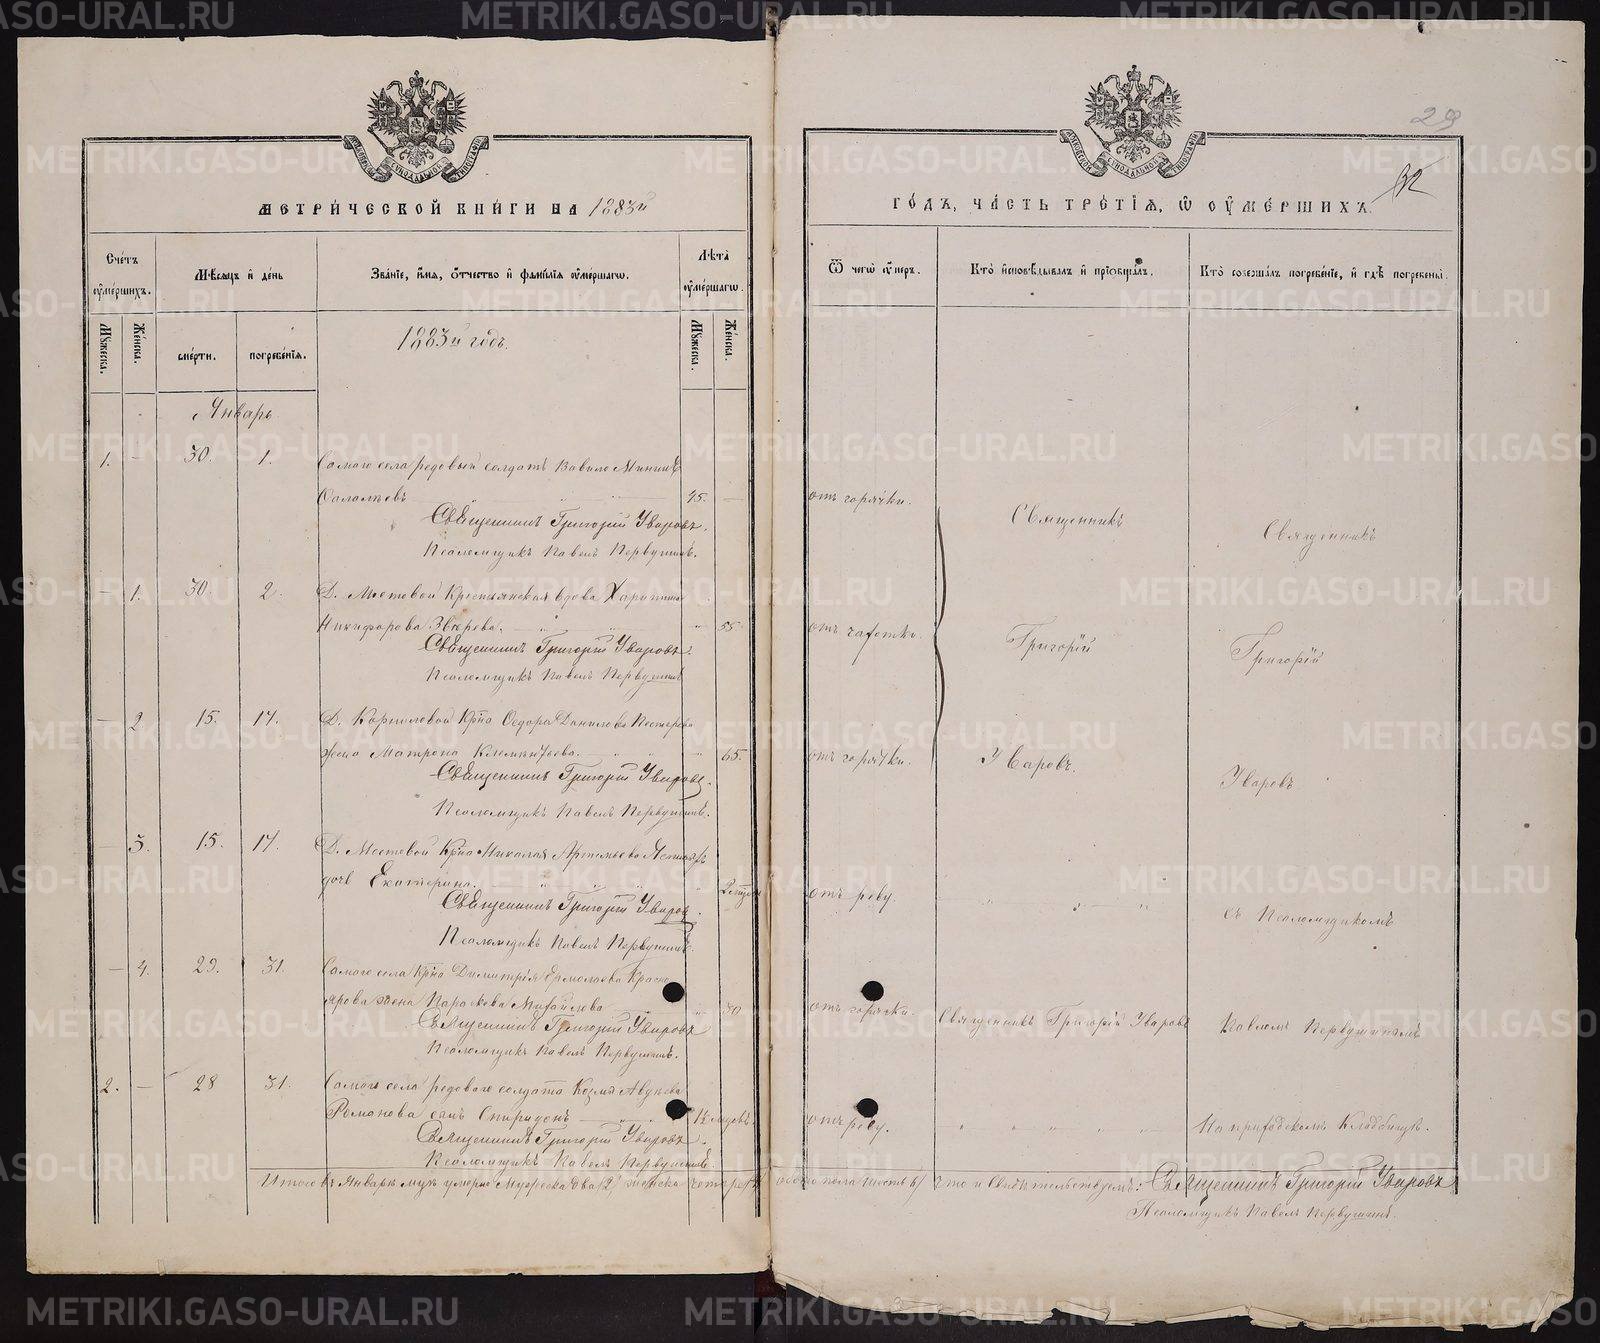 МЕТРИЧЕСКОЙ КНИГИ НА 1883й
Счетъ ѹмершихъ.
Мѣсяцъ и день
Званіе, имя, отчество и фамилія ѹмершагѡ.
Лѣта ѹмершагѡ.
Мꙋжеска.
Женска.
смерти.
погребенія.
Мꙋжеска.
Женска.
1883й годъ.
Январь
1. - 30. 1. Самого села рядовый солдатъ Вавило
45. -
Священникъ Григорій Уваровъ.
Псаломщикъ Павелъ Первушинъ.
- 1. 30. 2. Д. Мостовой Крестьянская вдова
Никифорова Звѣрева. 55.
Священникъ Григорій Уваровъ.
Псаломщикъ Павелъ Первушинъ
- 2 15. 17. Д. Корниловой Крна Ѳедора Данилова
жена Матрона 65.
Священникъ Григорій Уваровъ.
Псаломщикъ Павелъ Первушинъ.
- 3. 15. 17. Д. Мостовой Крна Николая Артемьева
дочь Екатерина.
Священникъ Григорій Уваровъ.
Псаломщикъ Павелъ Первушинъ.
- 4. 29. 31. Самого села Крна Димитрія Ермолаева Красно
ярова жена Параскева Михайлова 30
Священникъ Григорій Уваровъ
Псаломщикъ Павелъ Первушинъ.
2. - 28 31. Самого села рядоваго солдата Козмы
Романова сынъ Спиридонъ
Священникъ Григорій Уваровъ.
Псаломщикъ Павелъ Первушинъ.
Итого въ Январѣ умерло Мужеска два /2/ женска четыре /4/
29
32
ГОДЪ, ЧАСТЬ ТРЕТІЯ, Ѡ ОУМЕРШИХЪ.
Ѿ чегѡ ѹмеръ.
Кто исповѣдывалъ и пріобщалъ.
Кто совершалъ погребеніе, и гдѣ погребены.
отъ горячки.
Священникъ
Священникъ
отъ чахотки.
Григорій
Григорій
отъ горячки.
Уваровъ.
Уваровъ
отъ реву.
съ Псаломщикомъ
отъ горячки.
Священникъ Григорій Уваровъ
Павломъ Первушинымъ
отъ реву.
На приходскомъ Кладбищѣ.
обоего пола шесть 6/ что и Свидѣтельствуемъ: Священникъ Григорій Уваровъ
Псаломщикъ Павелъ Первушинъ.
METRIKI.GASO-URAL.RU